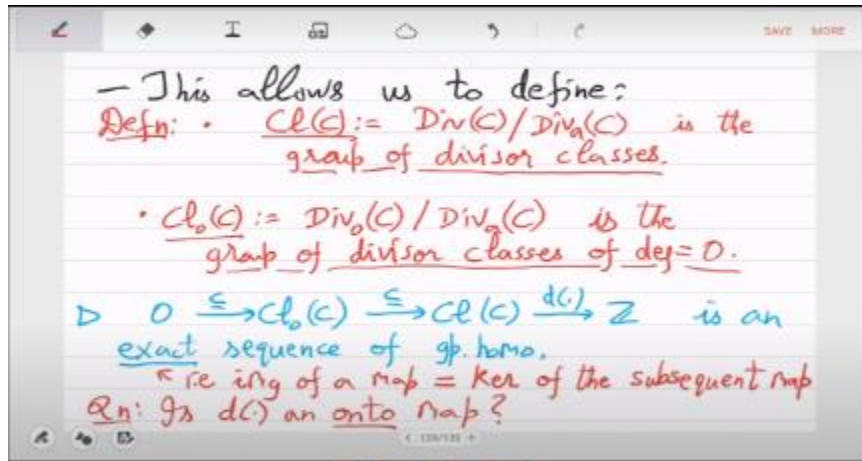 SAVE MORE
— This allows us to define:
Defn: • Cl(C) := Div(C)/Div_a(C) is the
group of divisor classes.
• Cl₀(C) := Div₀(C)/Div_a(C) is the
group of divisor classes of deg=0.
▷ 0 ⊆→ Cl₀(C) ⊆→ Cl(C) d(·)→ Z is an
exact sequence of gp. homo.
↖ i.e img of a map = Ker of the subsequent map
Qn: Is d(·) an onto map?